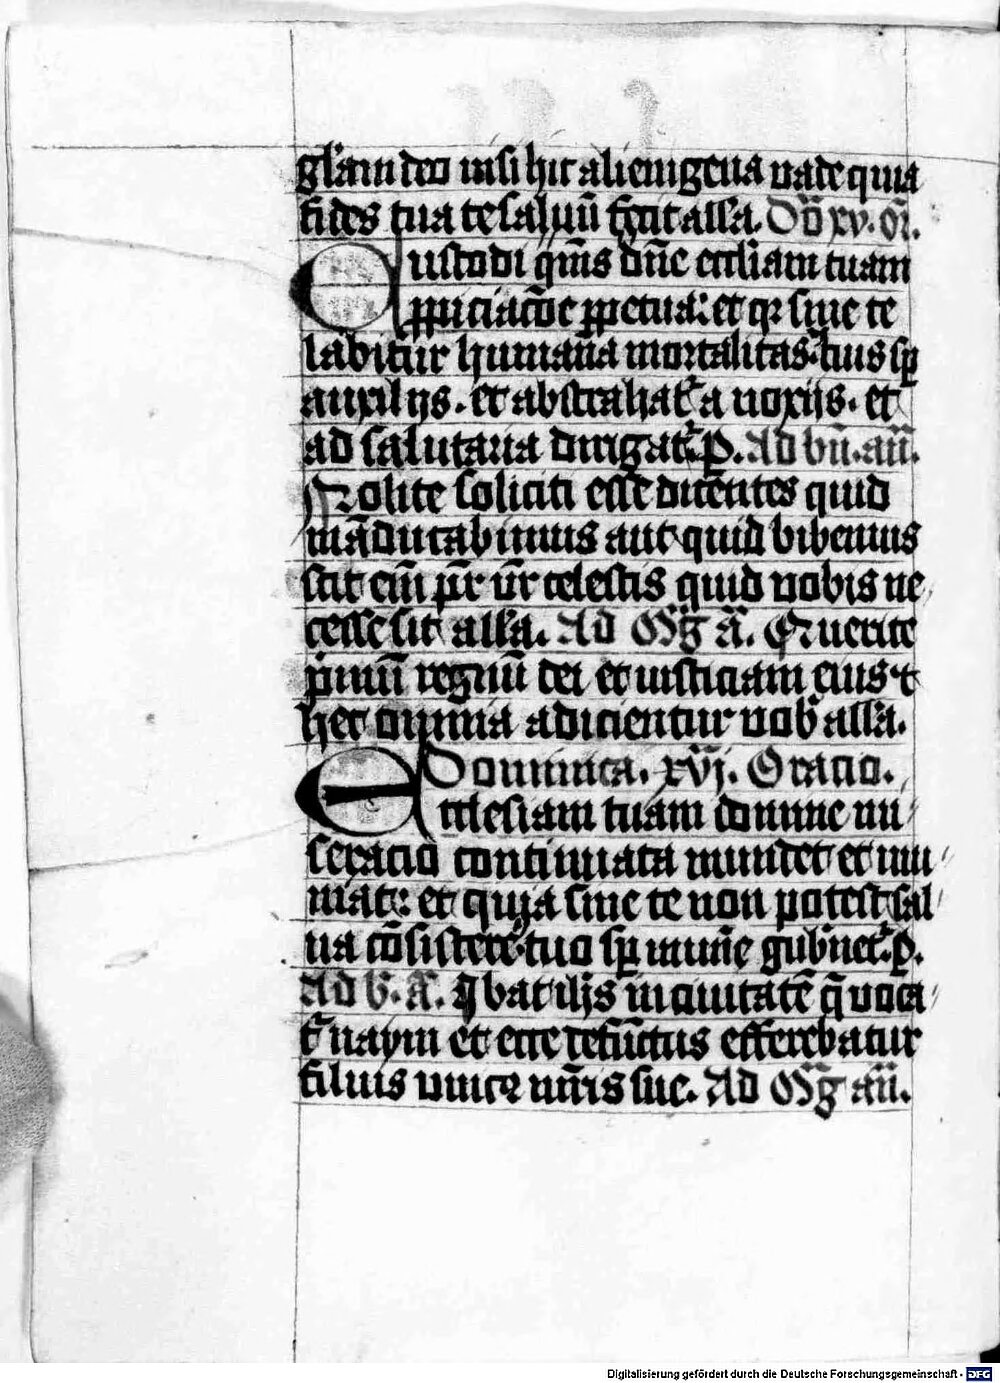 gl̃am deo nisi hic alienigena vade quia
fides tua te saluū fecit alla. Dōi xv. or̃.
Custodi q̄ms dn̄e eccl̃iam tuam
ꝓpiciacōe ꝑpetua: et qꝛ sine te
labitur humana mortalitas: tuis sꝑ
auxilijs. et abstrahat᷑ a noxijs. et
ad salutaria dirigat᷑. p. Ad bn̄. an̄.
Nolite soliciti esse dicentes quid
māducabimus aut quid bibemus
scit em̄ pr̄ vr̄ celestis quid vobis ne
cesse sit alla. Ad Mg̃ a. Querite
primū regnū dei et iusticiam eius et
hec omnia adicientur vob̄ alla.
Dominica. xvj. Oracio.
Ecclesiam tuam domine mi
seracio continuata mundet et mu
niat: et quia sine te non potest sal
ua cōsistere tuo sꝑ mun̄e gub̄net᷑. p.
Ad b. a. Ibat ih̄s in ciuitatē q̄ voca
t᷑ naym et ecce defūctus efferebatur
filius vnicꝰ mr̄is sue. Ad Mg̃ an̄.
Digitalisierung gefördert durch die Deutsche Forschungsgemeinschaft - DFG